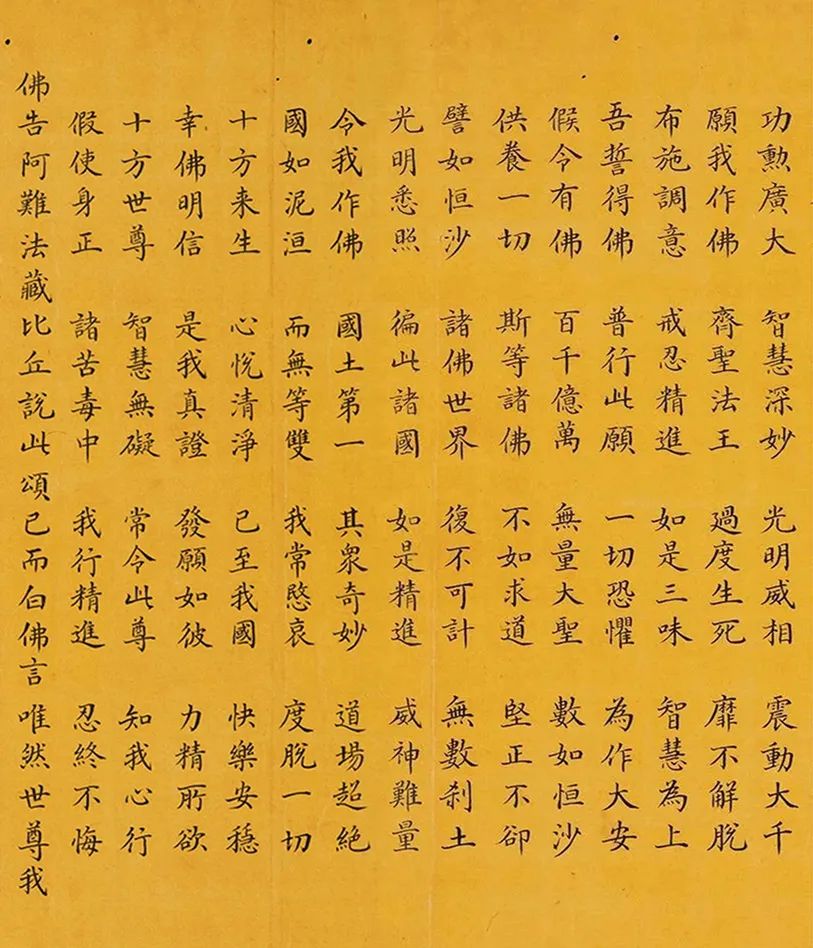 功勳廣大 智慧深妙 光明威相 震動大千
願我作佛 齊聖法王 過度生死 靡不解脫
布施調意 戒忍精進 如是三昧 智慧為上
吾誓得佛 普行此願 一切恐懼 為作大安
假令有佛 百千億萬 無量大聖 數如恒沙
供養一切 斯等諸佛 不如求道 堅正不卻
譬如恒沙 諸佛世界 復不可計 無數剎土
光明悉照 徧此諸國 如是精進 威神難量
令我作佛 國土第一 其衆奇妙 道場超絕
國如泥洹 而無等雙 我常愍哀 度脫一切
十方来生 心悅清淨 已至我國 快樂安穩
幸佛明信 是我真證 發願如彼 力精所欲
十方世尊 智慧無礙 常令此尊 知我心行
假使身正 諸苦毒中 我行精進 忍終不悔
佛告阿難法藏比丘說此頌已而白佛言唯然世尊我